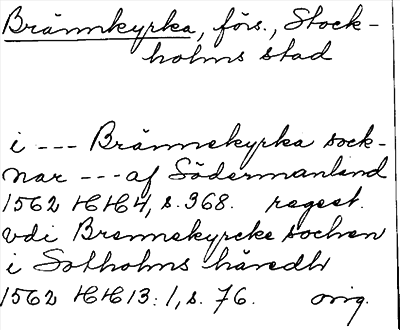 Brännkyrka, förs., Stock-
holms stad
i --- Brännekyrka sock-
nar --- af Södermanland
1562 HH4, s. 368. regest.
vdi Brennekyrcke sochen
i Sotholms häredh
1562 HH13:1, s. 76. orig.